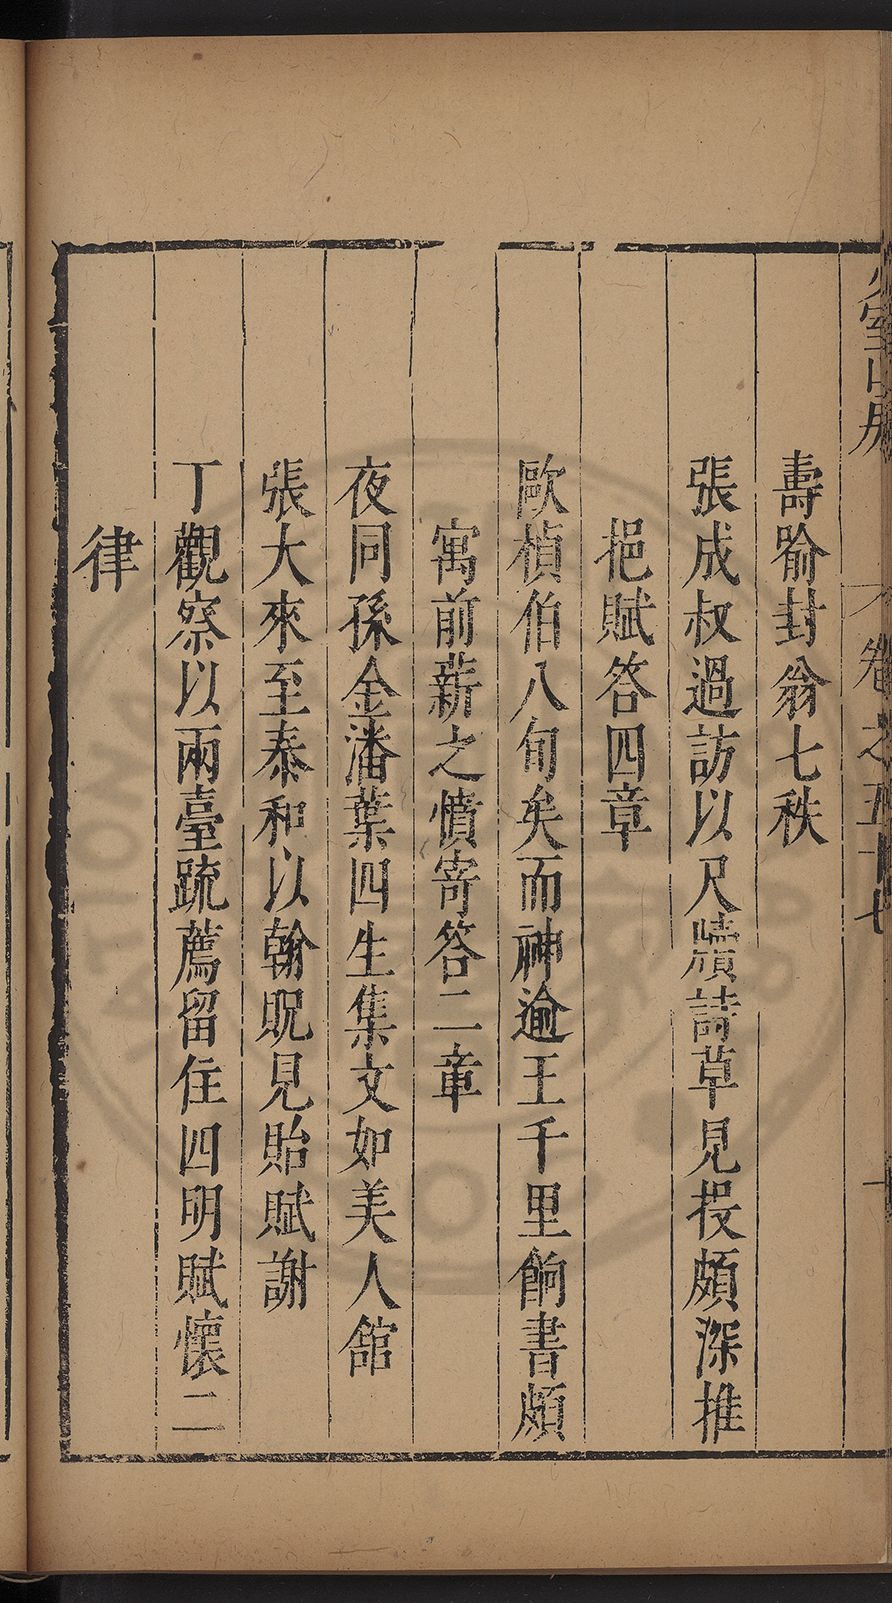 少室山房
卷之五十七
十
壽喻封翁七秩
張成叔過訪以尺牘詩草見投頗深推
挹賦答四章
歐楨伯八旬矣而神逾王千里餉書頗
寓前薪之憤寄答二章
夜同孫金潘葉四生集文如美人館
張大來至泰和以翰貺見貽賦謝
丁觀察以兩臺䟽薦留住四明賦懷二
律